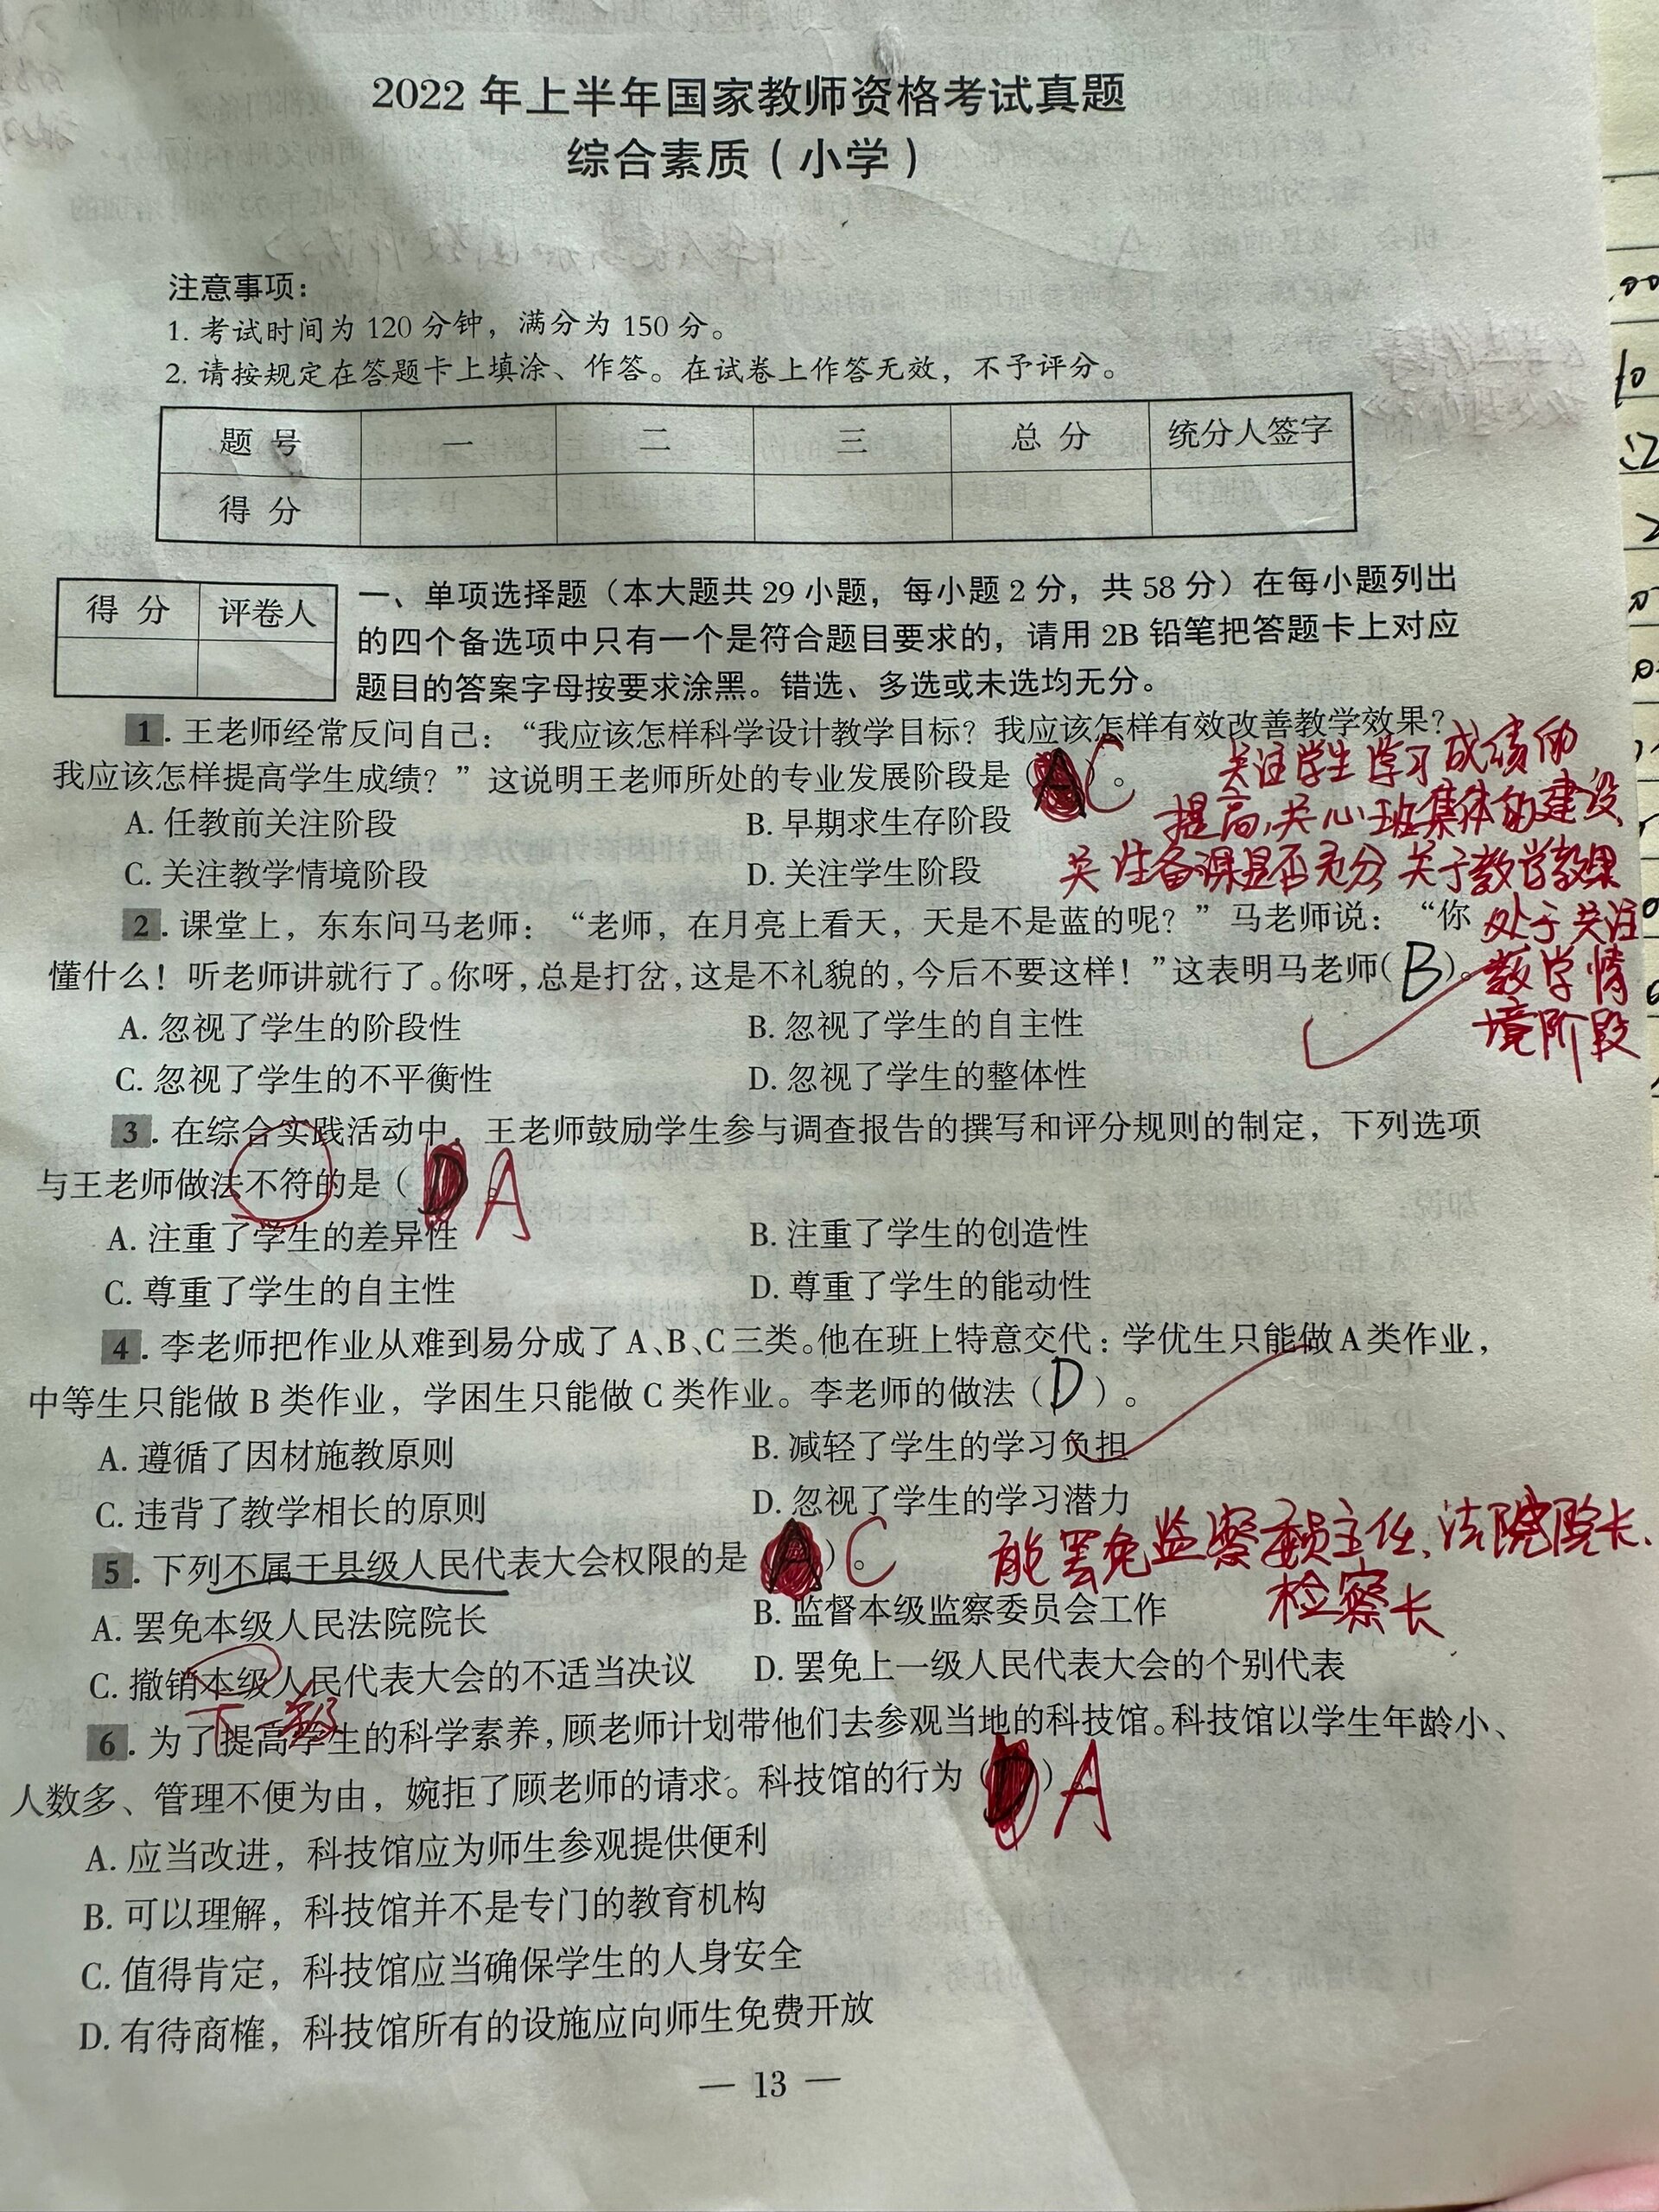 2022 年上半年国家教师资格考试真题
综合素质（小学）
注意事项：
1. 考试时间为 120 分钟，满分为 150 分。
2. 请按规定在答题卡上填涂、作答。在试卷上作答无效，不予评分。
题 号 一 二 三 总 分 统分人签字
得 分
得 分 评卷人
一、单项选择题（本大题共 29 小题，每小题 2 分，共 58 分）在每小题列出
的四个备选项中只有一个是符合题目要求的，请用 2B 铅笔把答题卡上对应
题目的答案字母按要求涂黑。错选、多选或未选均无分。
1. 王老师经常反问自己：“我应该怎样科学设计教学目标？我应该怎样有效改善教学效果？
我应该怎样提高学生成绩？”这说明王老师所处的专业发展阶段是（A）C。
关注学生学习成绩的
提高，关心班集体的建设，
关注备课是否充分 关于教学效果
处于关注
教学情
境阶段
A. 任教前关注阶段 B. 早期求生存阶段
C. 关注教学情境阶段 D. 关注学生阶段
2. 课堂上，东东问马老师：“老师，在月亮上看天，天是不是蓝的呢？”马老师说：“你
懂什么！听老师讲就行了。你呀，总是打岔，这是不礼貌的，今后不要这样！”这表明马老师（B）。
A. 忽视了学生的阶段性 B. 忽视了学生的自主性
C. 忽视了学生的不平衡性 D. 忽视了学生的整体性
3. 在综合实践活动中，王老师鼓励学生参与调查报告的撰写和评分规则的制定，下列选项
与王老师做法不符的是（D A
A. 注重了学生的差异性 B. 注重了学生的创造性
C. 尊重了学生的自主性 D. 尊重了学生的能动性
4. 李老师把作业从难到易分成了 A、B、C 三类。他在班上特意交代：学优生只能做 A 类作业，
中等生只能做 B 类作业，学困生只能做 C 类作业。李老师的做法（D）。
A. 遵循了因材施教原则 B. 减轻了学生的学习负担
C. 违背了教学相长的原则 D. 忽视了学生的学习潜力
5. 下列不属于县级人民代表大会权限的是（A）。C
能罢免监察委员主任、法院院长、
检察长
A. 罢免本级人民法院院长 B. 监督本级监察委员会工作
C. 撤销本级人民代表大会的不适当决议 D. 罢免上一级人民代表大会的个别代表
下一级
6. 为了提高学生的科学素养，顾老师计划带他们去参观当地的科技馆。科技馆以学生年龄小、
人数多、管理不便为由，婉拒了顾老师的请求。科技馆的行为（D）A
A. 应当改进，科技馆应为师生参观提供便利
B. 可以理解，科技馆并不是专门的教育机构
C. 值得肯定，科技馆应当确保学生的人身安全
D. 有待商榷，科技馆所有的设施应向师生免费开放
— 13 —